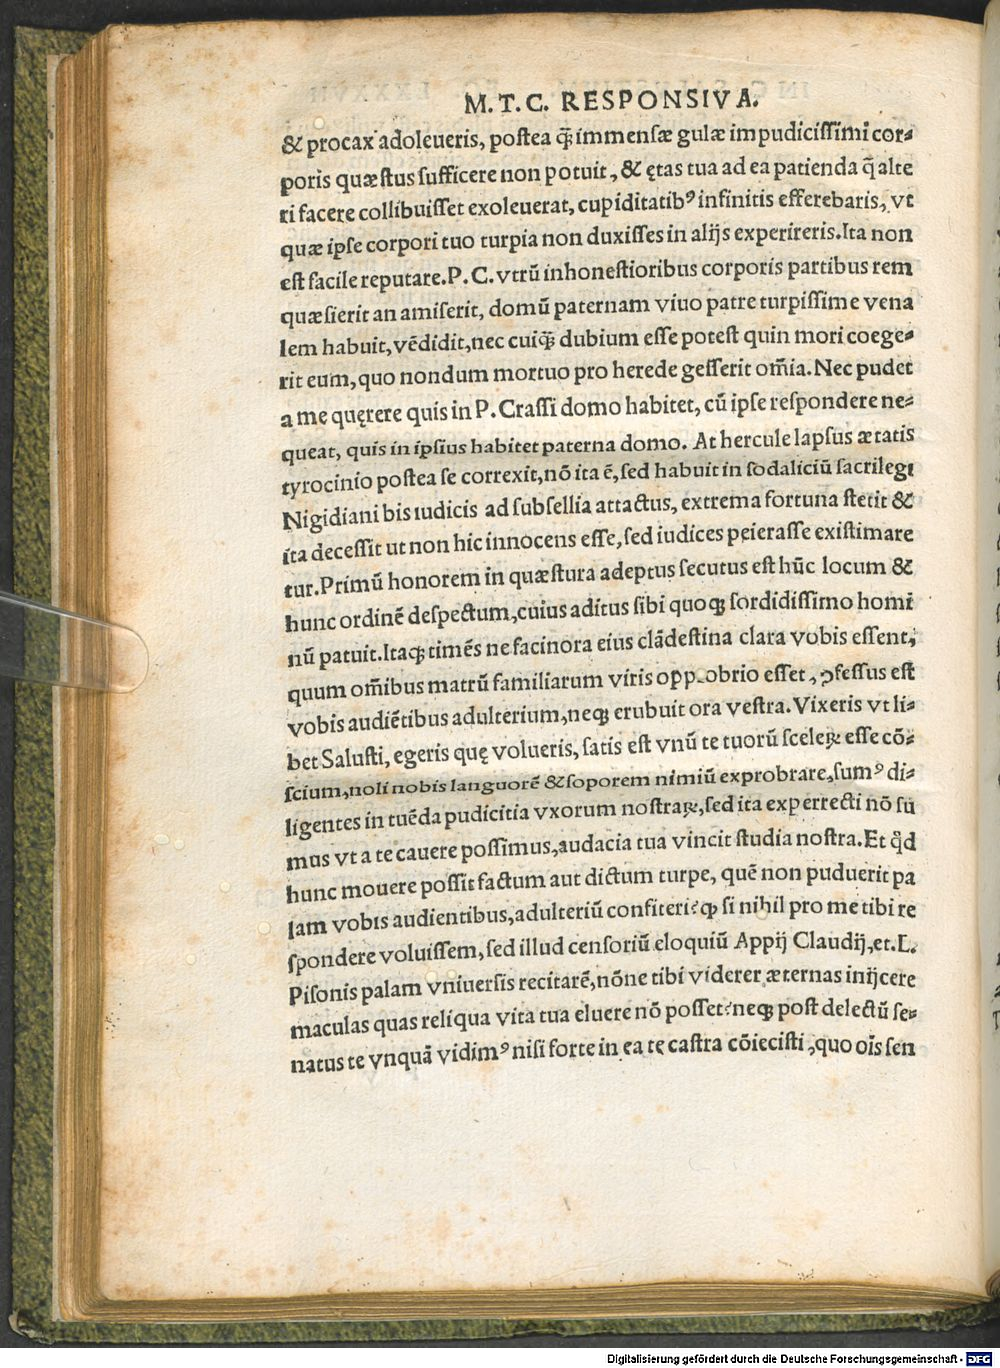 M.T.C. RESPONSIVA.
& procax adoleueris, postea q̃ immensæ gulæ impudicissimi cor-
poris quæstus sufficere non potuit, & ętas tua ad ea patienda q̃ alte
ri facere collibuisset exoleuerat, cupiditatibꝰ infinitis efferebaris, vt
quæ ipse corpori tuo turpia non duxisses in alijs experireris. Ita non
est facile reputare. P. C. vtrũ inhonestioribus corporis partibus rem
quæsierit an amiserit, domũ paternam viuo patre turpissime vena
lem habuit, vẽdidit, nec cuiqꝫ dubium esse potest quin mori coege-
rit eum, quo nondum mortuo pro herede gesserit om̃ia. Nec pudet
a me quęrere quis in P. Crassi domo habitet, cũ ipse respondere ne-
queat, quis in ipsius habitet paterna domo. At hercule lapsus ætatis
tyrocinio postea se correxit, nõ ita ẽ, sed habuit in sodaliciũ sacrilegi
Nigidiani bis iudicis ad subsellia attactus, extrema fortuna stetit &
ita decessit ut non hic innocens esse, sed iudices peierasse existimare
tur. Primũ honorem in quæstura adeptus secutus est hũc locum &
hunc ordinẽ despectum, cuius aditus sibi quoqꝫ sordidissimo homi
nũ patuit. Itaqꝫ timẽs ne facinora eius clãdestina clara vobis essent,
quum om̃ibus matrũ familiarum viris opprobrio esset, ꝓfessus est
vobis audiẽtibus adulterium, neqꝫ erubuit ora vestra. Vixeris vt li-
bet Salusti, egeris quę volueris, satis est vnũ te tuorũ sceleꝝ esse cõ-
scium, noli nobis languorẽ & soporem nimiũ exprobrare, sumꝰ di-
ligentes in tuẽda pudicitia vxorum nostraꝝ, sed ita experrecti nõ su
mus vt a te cauere possimus, audacia tua vincit studia nostra. Et qd̃
hunc mouere possit factum aut dictum turpe, quẽ non puduerit pa
lam vobis audientibus, adulteriũ confiteri? qꝫ si nihil pro me tibi re
spondere voluissem, sed illud censoriũ eloquiũ Appij Claudij, et. L.
Pisonis palam vniuersis recitarẽ, nõne tibi viderer æternas inijcere
maculas quas reliqua vita tua eluere nõ posset? neqꝫ post delectũ se-
natus te vnquã vidimꝰ nisi forte in ea te castra cõiecisti, quo oĩs sen
Digitalisierung gefördert durch die Deutsche Forschungsgemeinschaft - DFG